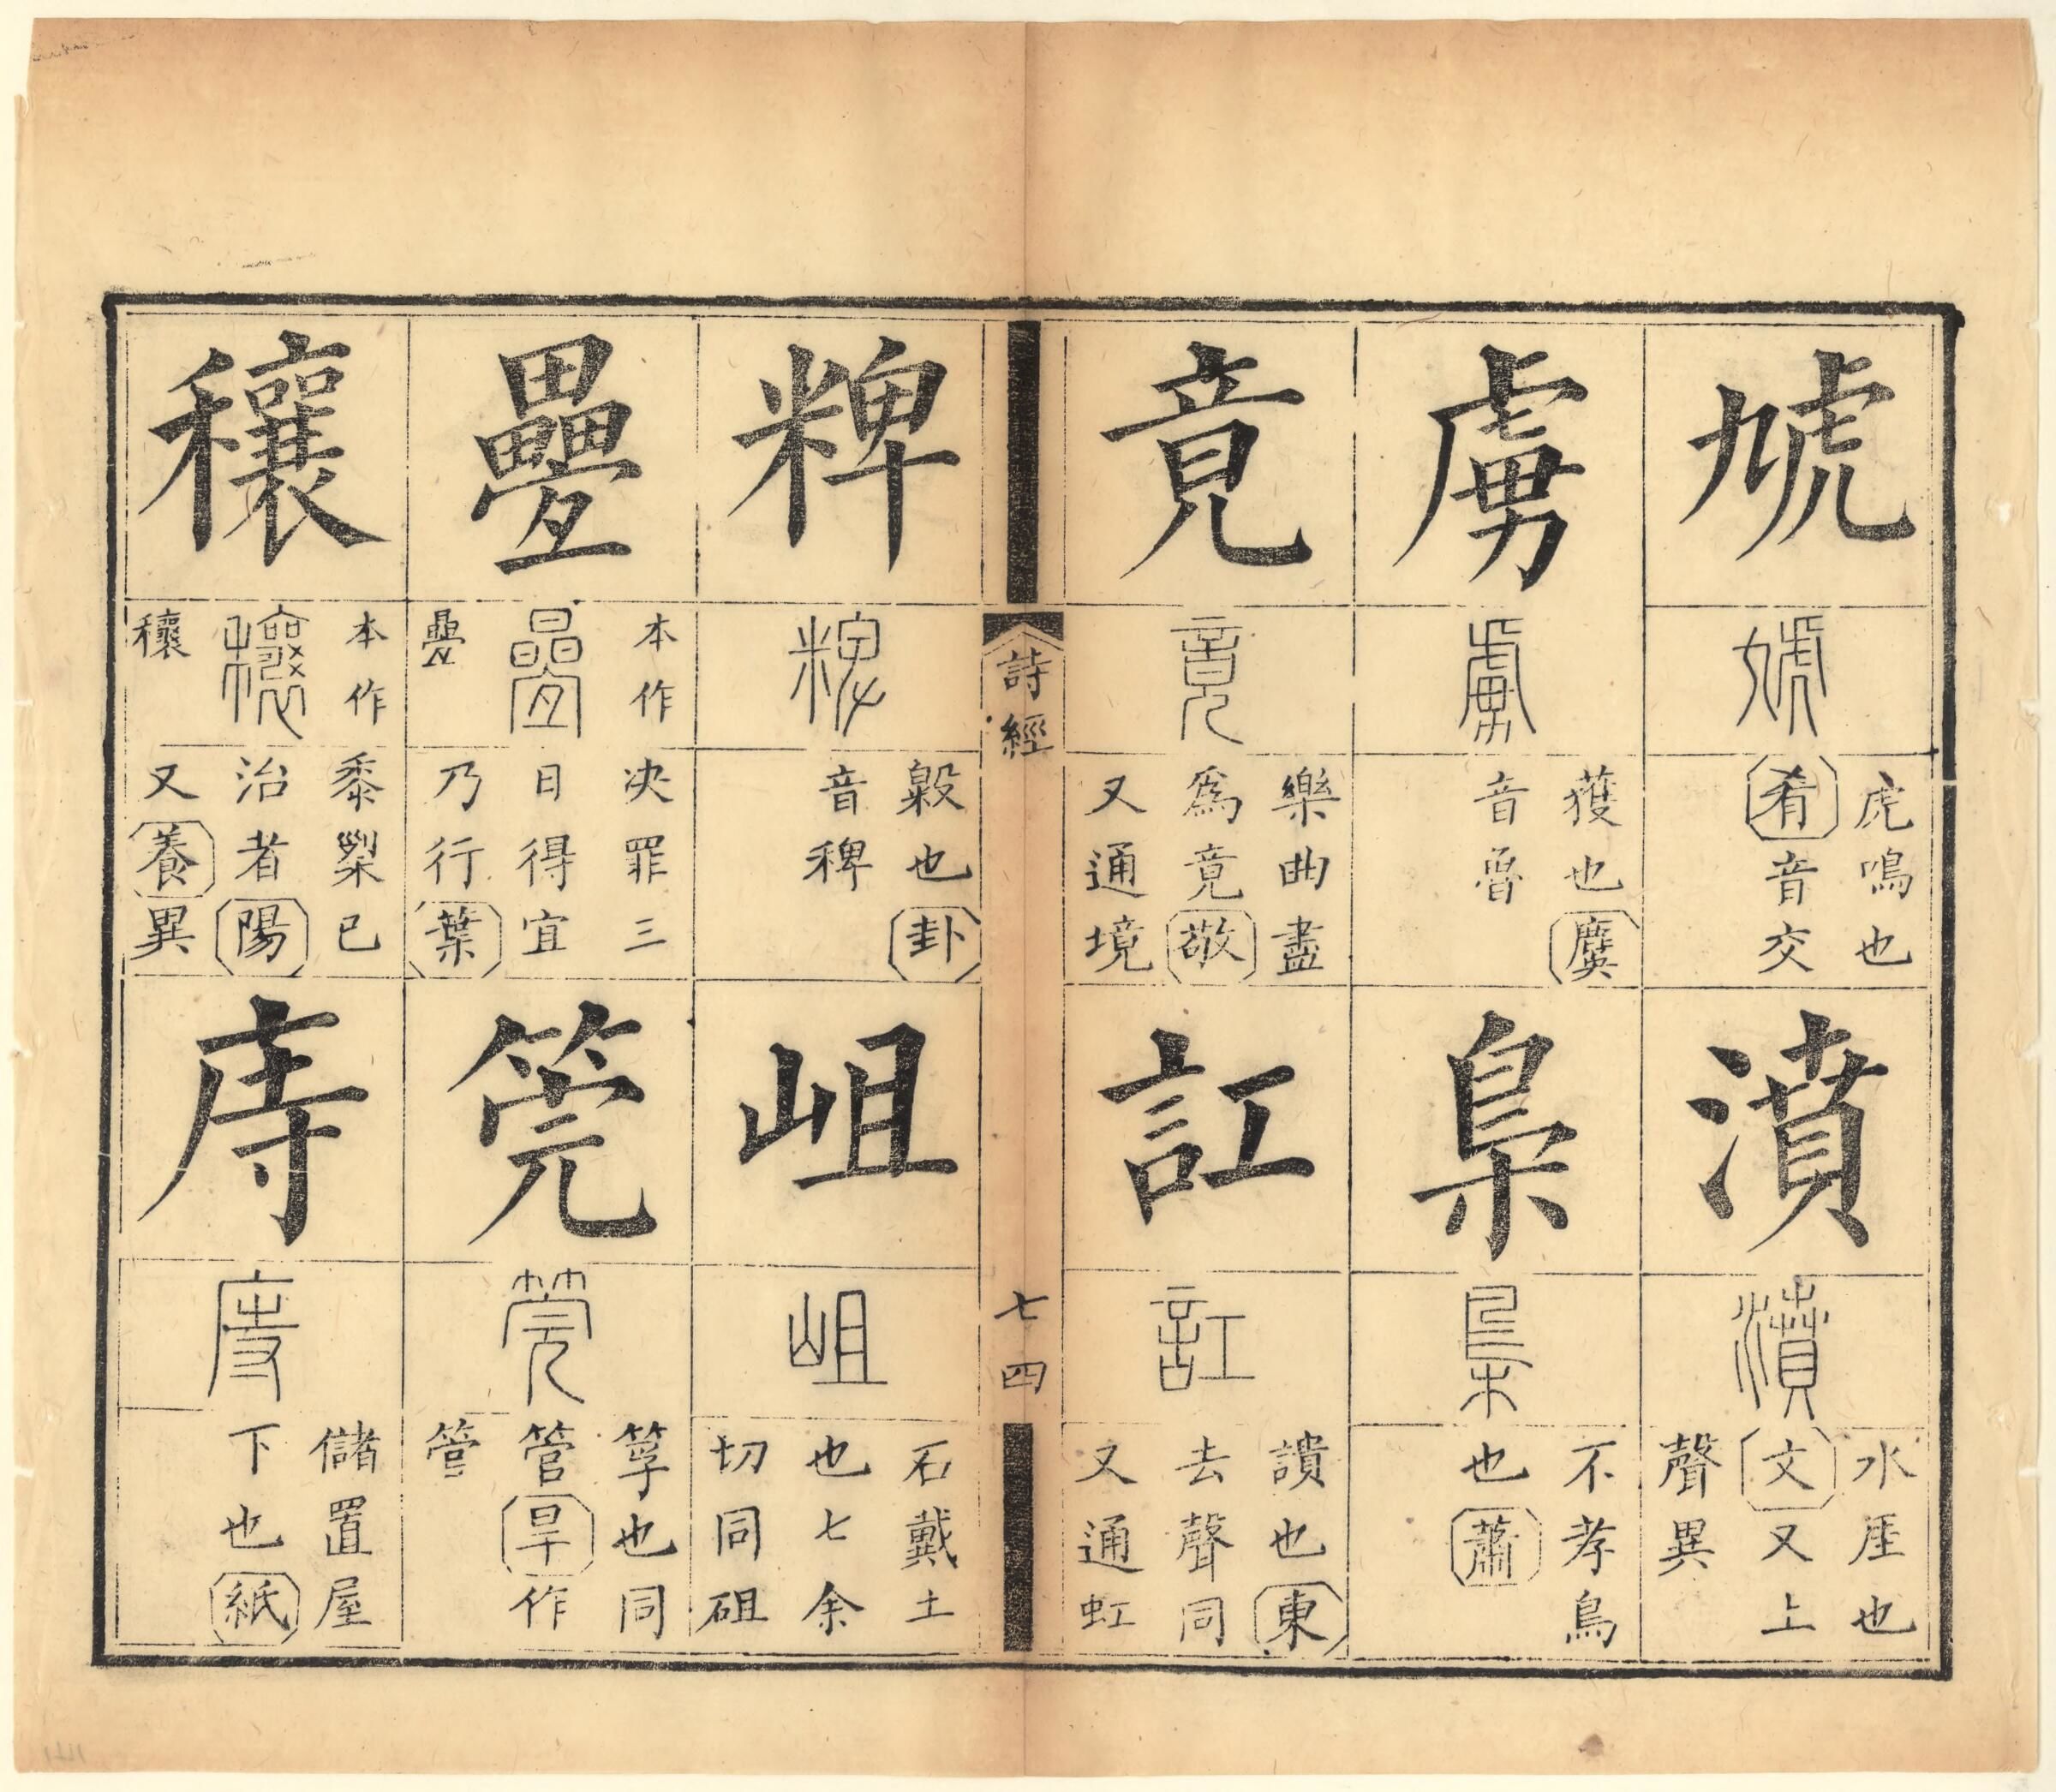 虓
虓
虎鳴也
肴音交
濆
濆
水厓也
文又上
聲異
虜
虜
獲也麌
音魯
梟
梟
不孝鳥
也蕭
竟
竟
樂曲盡
爲竟敬
又通境
訌
訌
䜋也東
去聲同
又通虹
詩經
七四
粺
粺
糓也卦
音稗
岨
岨
石戴土
也七余
切同砠
疊
本作
曡
疊
決罪三
日得宜
乃行葉
筦
筦
筟也同
管旱作
管
穰
本作
穰
穰
黍梨已
治者陽
又養異
庤
庤
儲置屋
下也紙